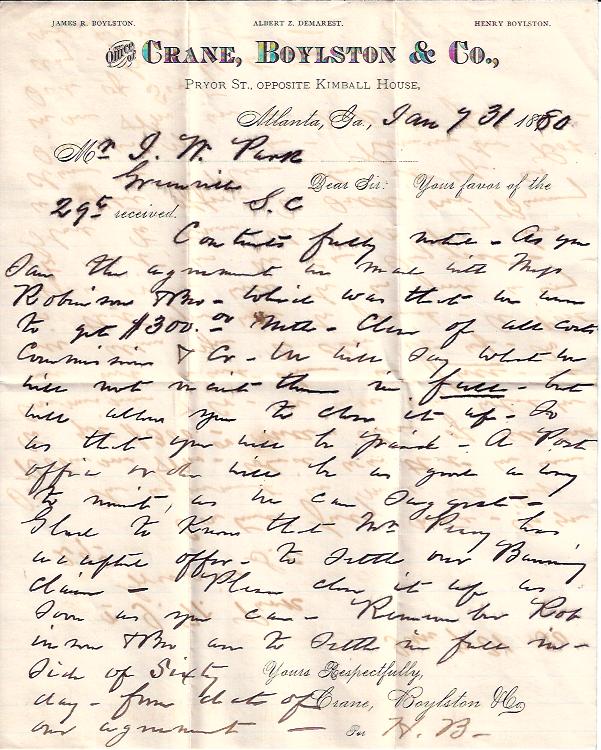 JAMES R. BOYLSTON. ALBERT Z. DEMAREST. HENRY BOYLSTON.
Office of CRANE, BOYLSTON & CO.,
PRYOR ST., OPPOSITE KIMBALL HOUSE,
Atlanta, Ga., Jany 31 1880
Mr. J. W. Park
Greenville
Dear Sir: Your favor of the
29th received. S. C
Contents fully noted - As you
saw the agreement we made with Mess
Robinson & Bro - Which was that we were
to get $300.00 Nett - Clear of all costs
Commissions & Co - We will say what we
will not insist them in full - but
will allow you to close it up - So
as that you will be paid - A Post
office order will be as good a way
to remit, as we can suggest -
Glad to Know that Mr Perry has
accepted offer - to settle our
claim - Please close it up as
soon as you can - Remember Rob
inson & Bro are to settle in full in-
side of Sixty Yours Respectfully,
day - from date of Crane, Boylston & Co
our agreement - Per H. B -